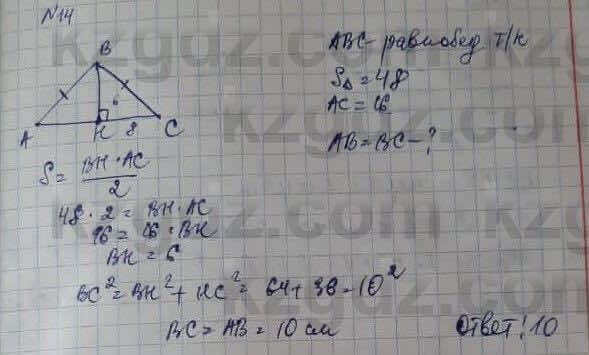 N14
ABC - равнобед. т/к
S△ = 48
AC = 16
AB = BC - ?
B
6
A
H
8
C
S = BH · AC / 2
48 · 2 = BH · AC
96 = 16 · BH
BH = 6
BC² = BH² + HC² = 64 + 36 = 10²
BC = AB = 10 см
Ответ: 10
kzgdz.com